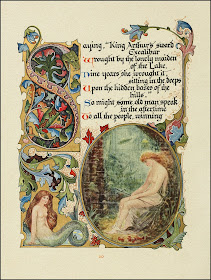 Saying, "King Arthur's sword
Excalibur
Wrought by the lonely maiden
of the Lake.
Nine years she wrought it,
sitting in the deeps
Upon the hidden bases of the
hills."
So might some old man speak
in the aftertime
To all the people, winning